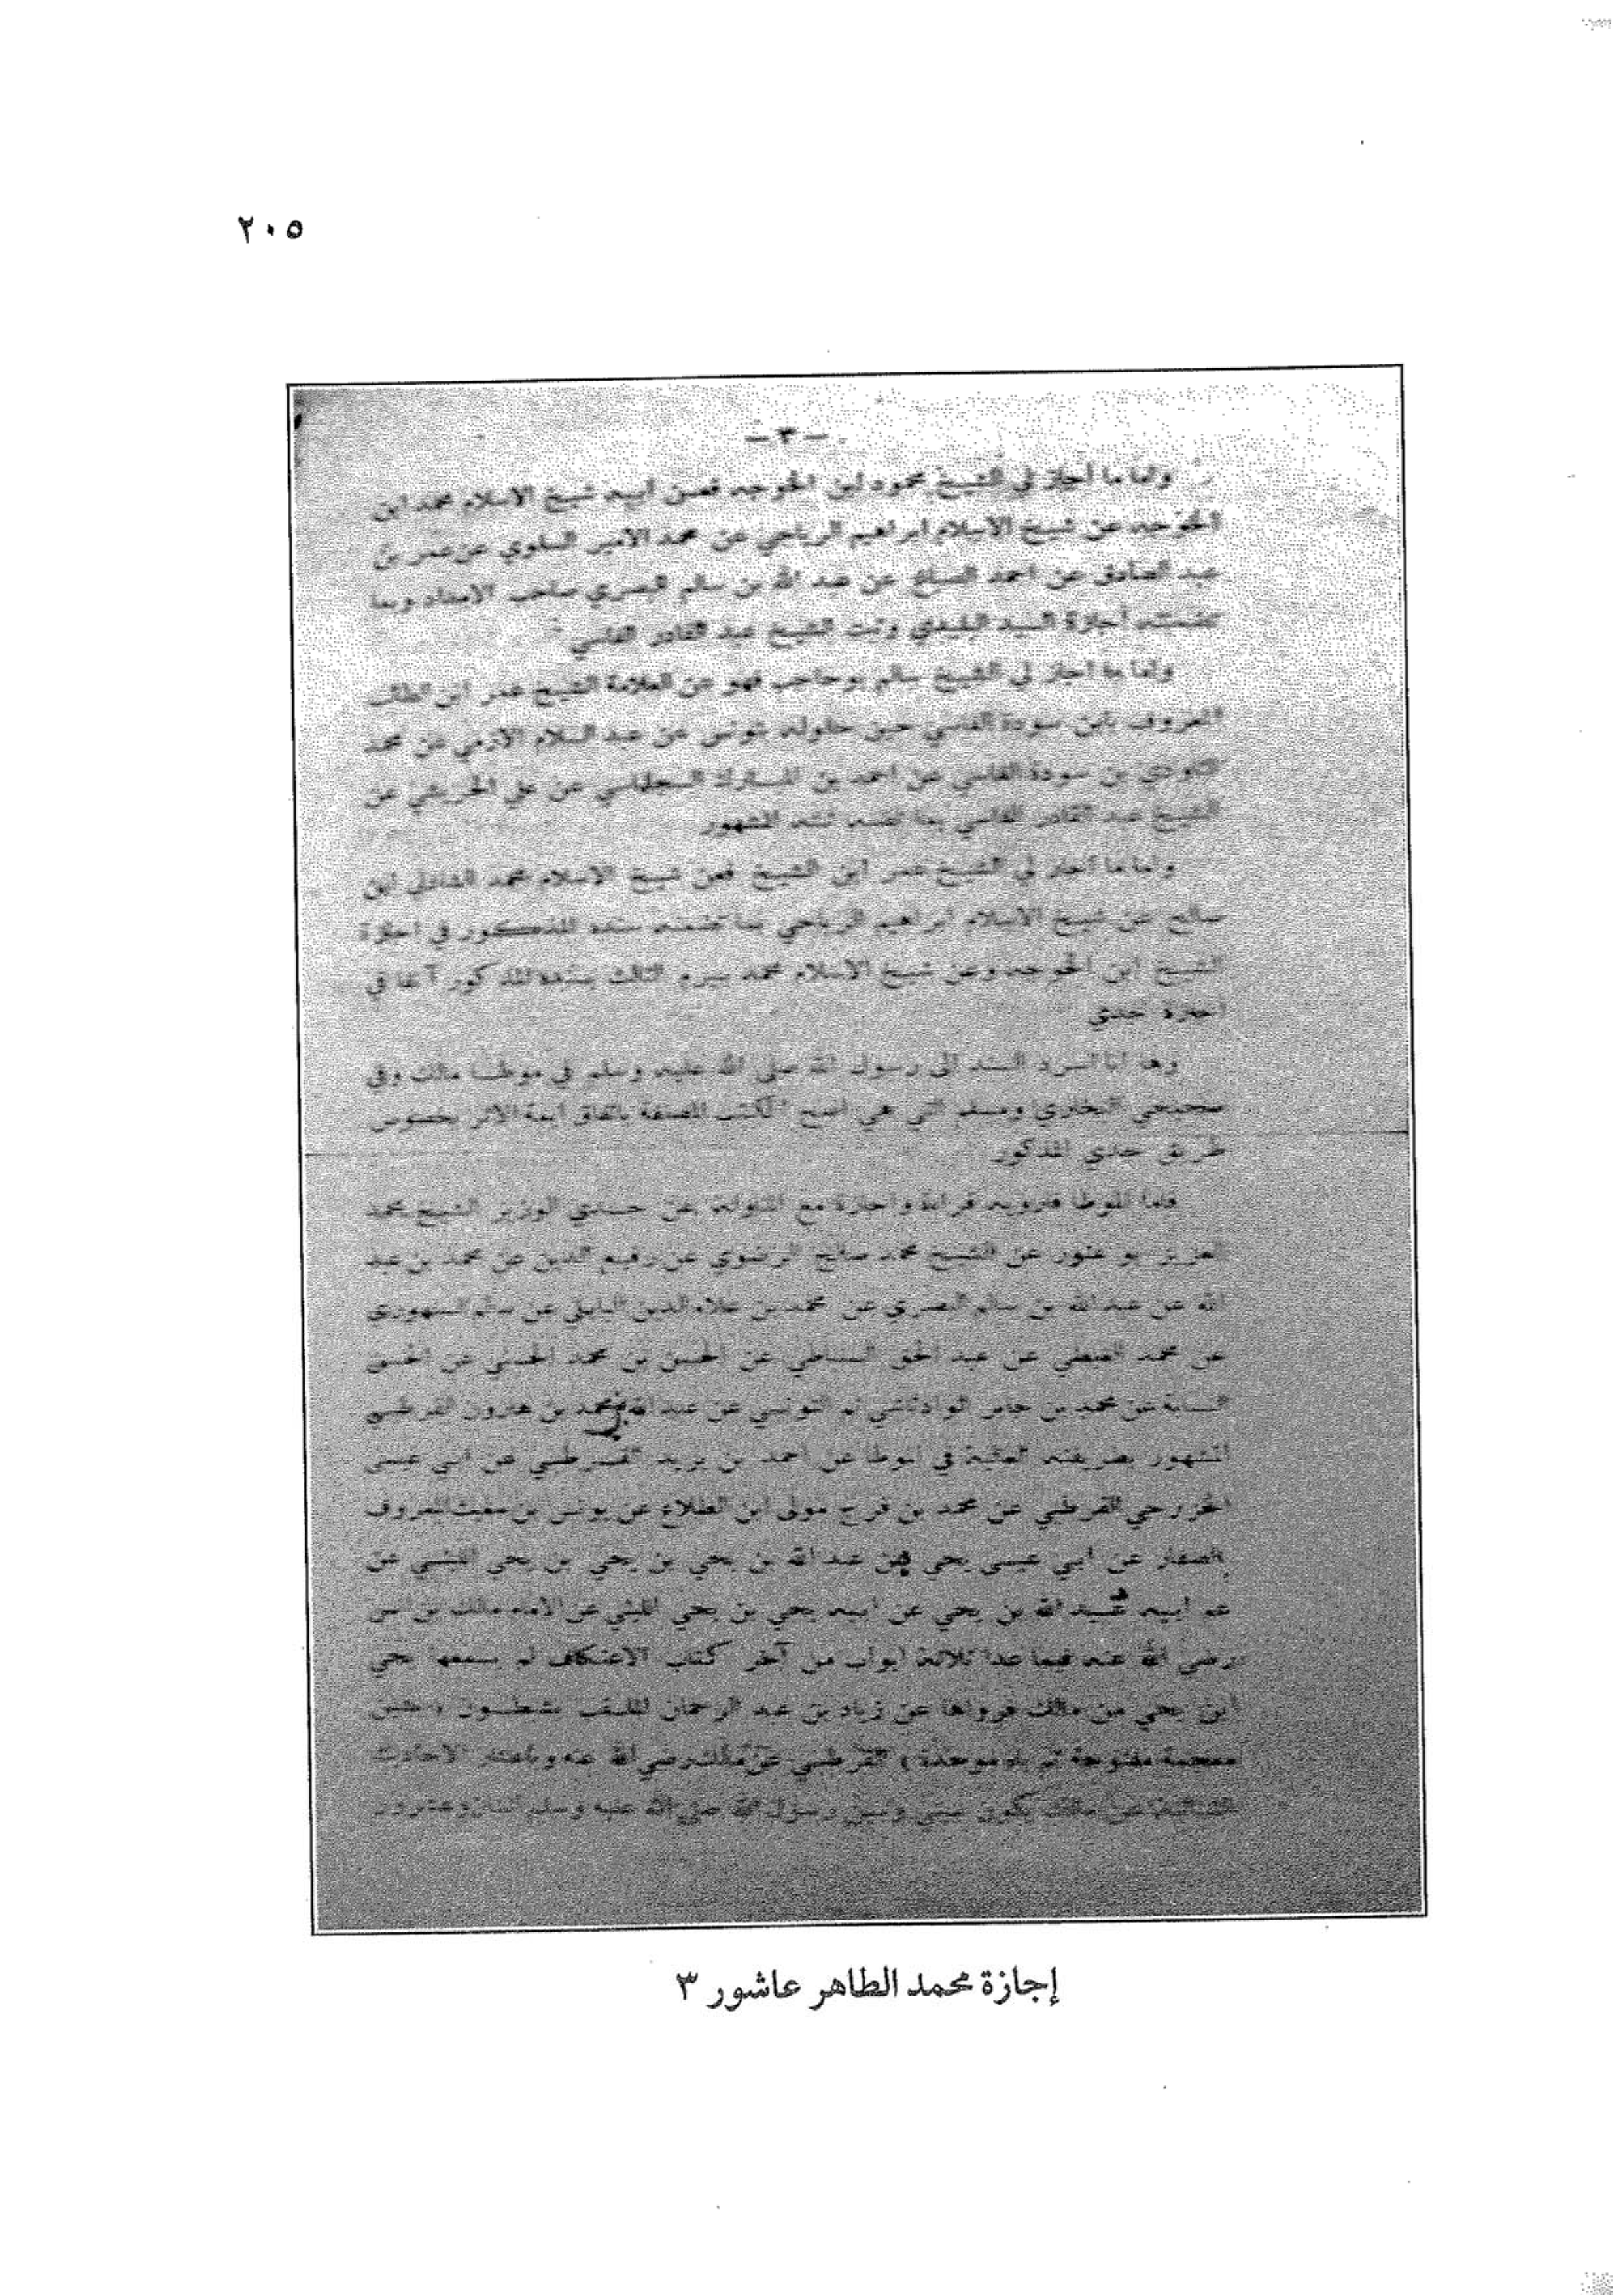 ٢٠٥
— ٣ —
واما ما أجاز لي الشيخ محمود ابن الخوجه فعن أبيه شيخ الاسلام محمد ابن
الخوجه عن شيخ الاسلام ابراهيم الرياحي عن محمد الأمير السلوي عن عمر بن
عبد الصادق عن احمد الصباغ عن عبد الله بن سالم البصري صاحب الامداد وبما
تضمنته أجازة السيد البليدي وثبت الشيخ عبد القادر الفاسي
واما ما اجاز لي الشيخ سالم بوحاجب فهو عن العلامة الشيخ عمر ابن الطالب
المعروف بابن سودة الفاسي حين حلوله بتونس عن عبد السلام الازمي عن محمد
التاودي بن سودة الفاسي عن احمد بن المبارك السجلماسي عن علي الحريشي عن
الشيخ عبد القادر الفاسي بما تضمنه ثبته المشهور
واما ما أجاز لي الشيخ عمر ابن الشيخ فعن شيخ الاسلام محمد الشاذلي ابن
صالح عن شيخ الاسلام ابراهيم الرياحي بما تضمنه سنده المذكور في اجازة
الشيخ ابن الخوجه وعن شيخ الاسلام محمد بيرم الثالث بسنده المذكور آنفا في
اجازة جدي
وها انا اسرد السند الى رسول الله صلى الله عليه وسلم في موطا مالك وفي
صحيحي البخاري ومسلم التي هي اصح الكتب المصنفة باتفاق ايمة الاثر بخصوص
طريق جدي المذكور
فاما الموطا فنرويه قراءة واجازة مع المناولة عن جدي الوزير الشيخ محمد
العزيز بو عتور عن الشيخ محمد صالح الرضوي عن رفيع الدين عن محمد بن عبد
الله عن عبد الله بن سالم البصري عن محمد بن علاء الدين البابلي عن سالم السنهوري
عن محمد الغيطي عن عبد الحق السنباطي عن الحسن بن محمد الحسني عن الحسن
النسابة عن محمد بن جابر الوادئاشي ثم التونسي عن عبد الله بن محمد بن هارون القرطبي
المشهور بطريقته العالية في الموطا عن احمد بن يزيد القرطبي عن ابي عيسى
الخزرجي القرطبي عن محمد بن فرج مولى ابن الطلاع عن يونس بن مغيث المعروف
بالصفار عن ابي عيسى يحي بن عبد الله بن يحي بن يحي بن يحي الليثي عن
عم ابيه عبيد الله بن يحي عن ابيه يحي بن يحي الليثي عن الامام مالك بن انس
رضي الله عنه فيما عدا ثلاثة ابواب من آخر كتاب الاعتكاف لم يسمعها يحي
ابن يحي من مالك فرواها عن زياد بن عبد الرحمان الملقب بشبطون بشين
معجمة مفتوحة ثم باء موحدة ) القرطبي عن مالك رضي الله عنه وباعتبار الاحاديث
الثنائية عن مالك يكون بيني وبين رسول الله صلى الله عليه وسلم
إجازة محمد الطاهر عاشور ٣